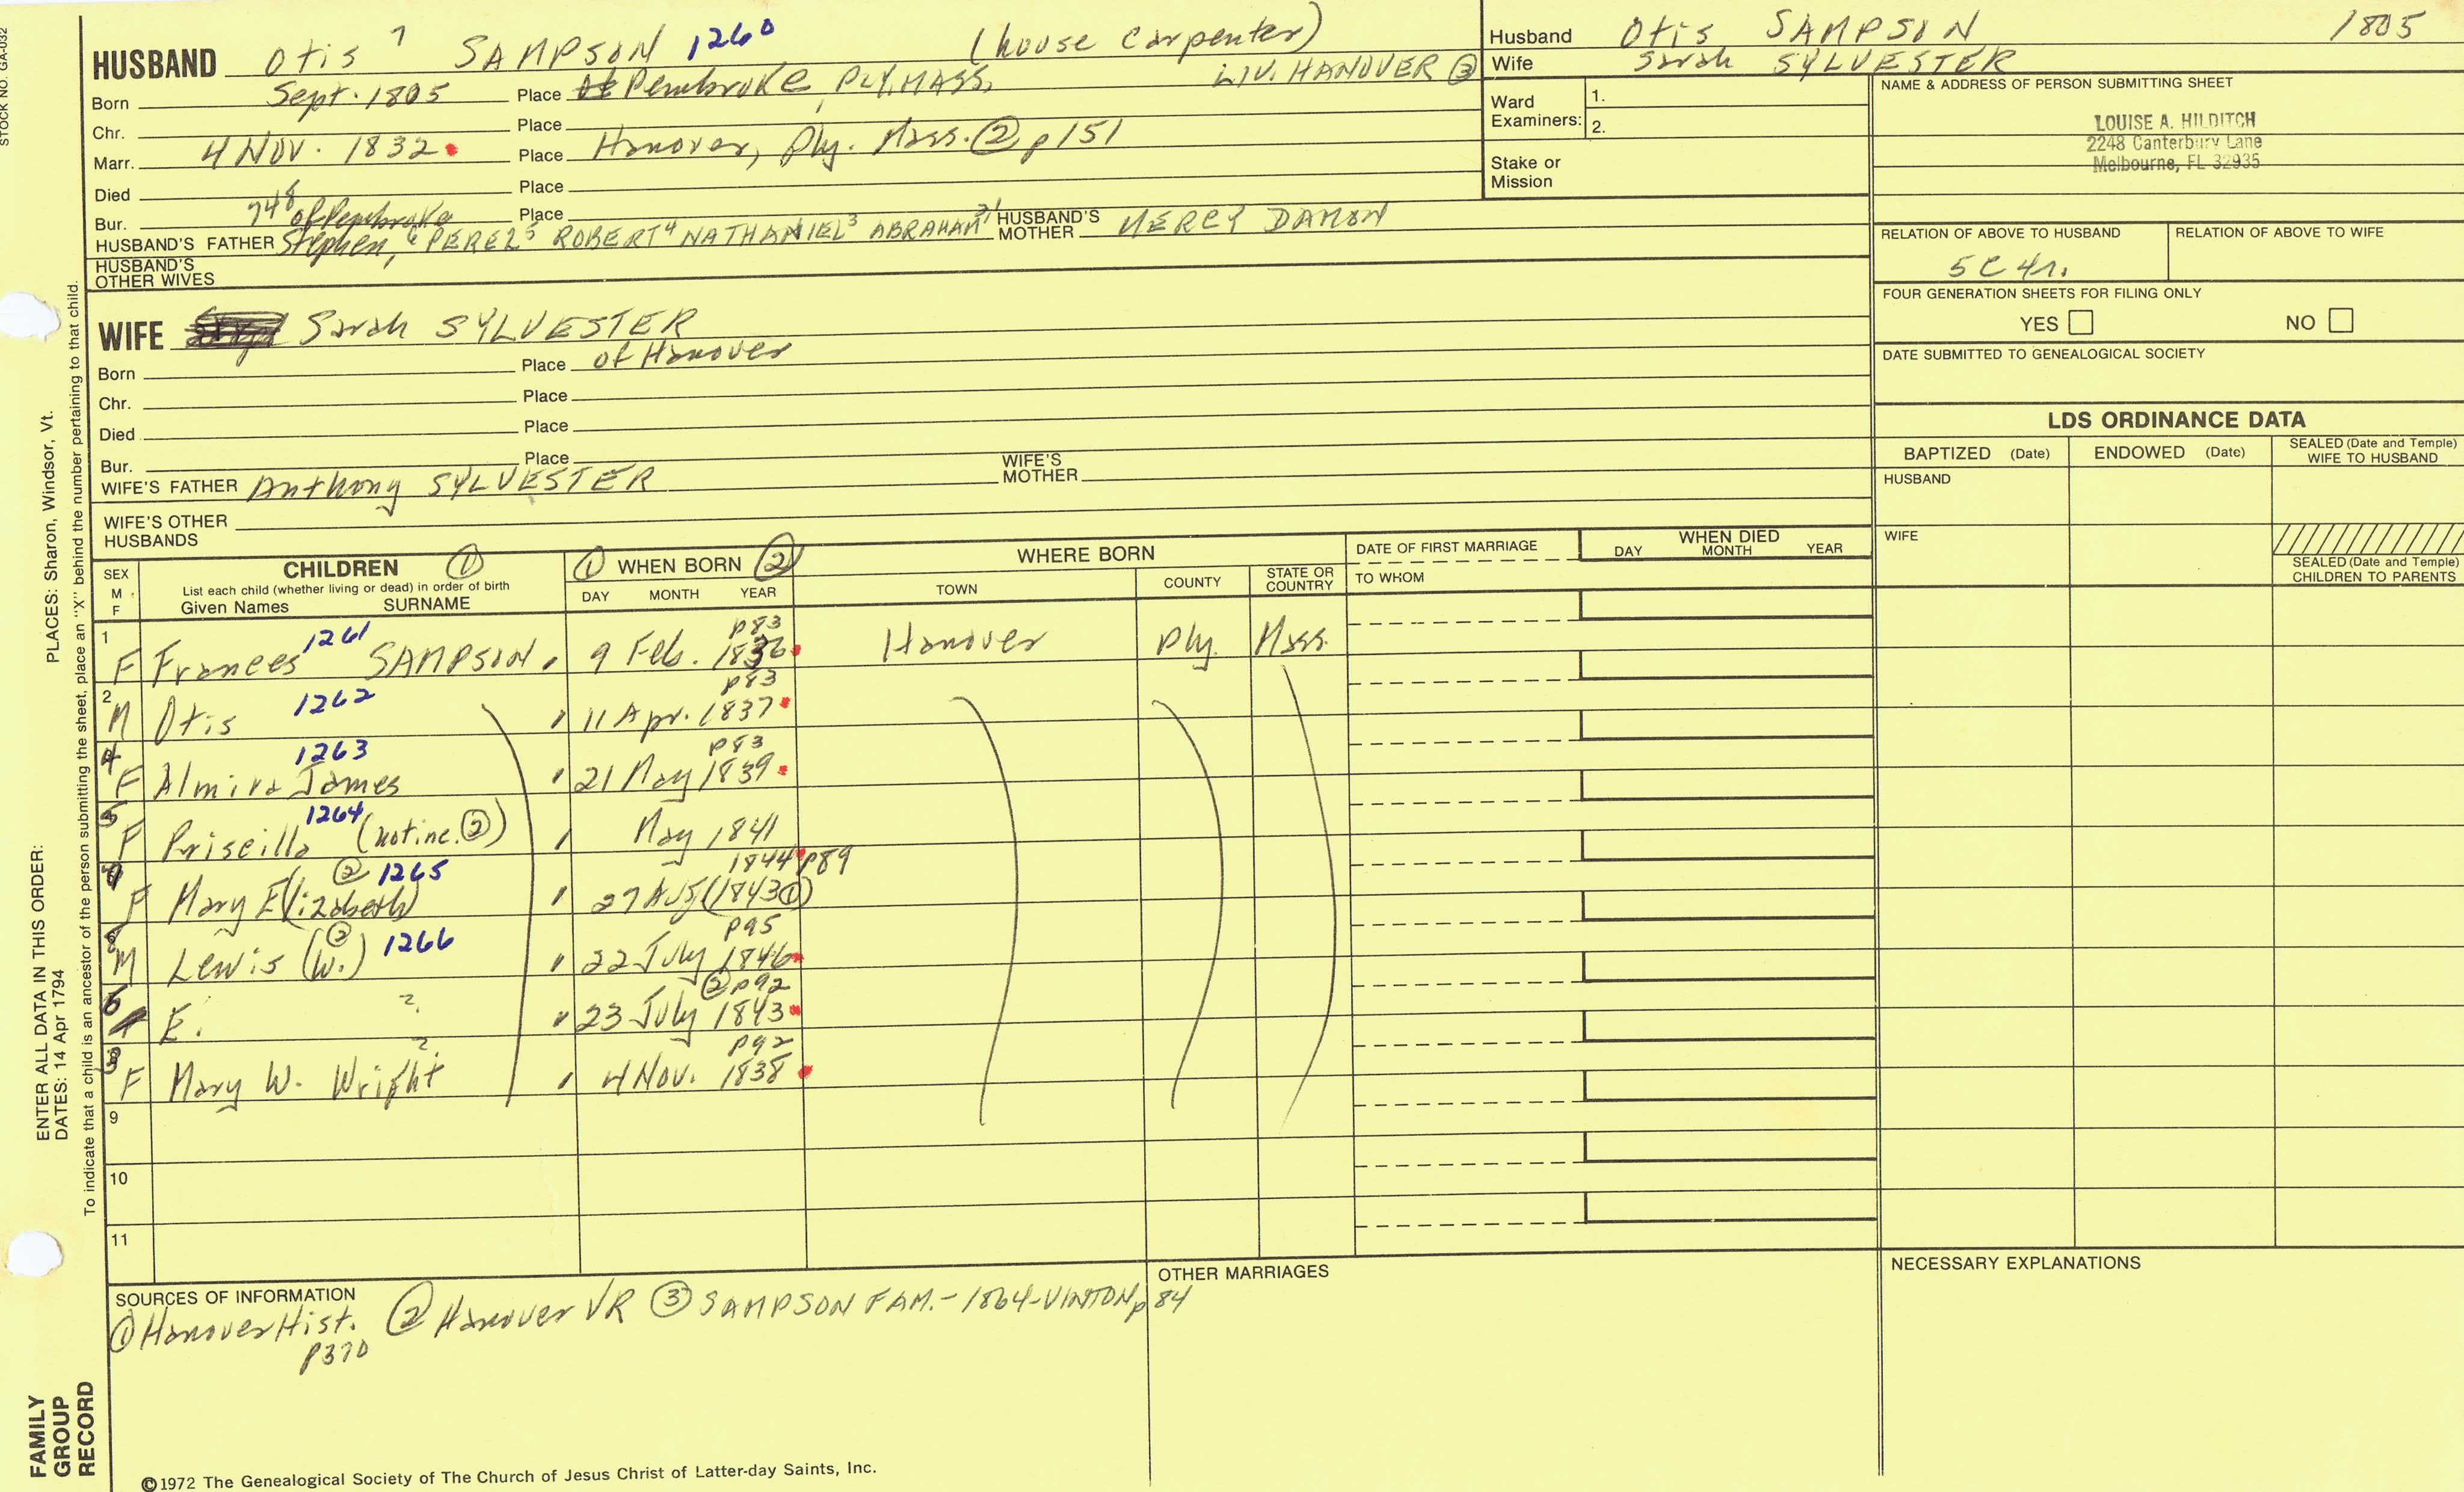 STOCK NO. GA-032
HUSBAND Otis 7 SAMPSON 1260 (house carpenter)
Born Sept. 1805 Place Pembroke, PLY. MASS. LIV. HANOVER ③
Chr. Place
Marr. 4 NOV. 1832 Place Hanover, Ply. Mass. ② p151
Died Place
Bur. 748 of Pembroke Place
HUSBAND'S FATHER Stephen, 6 PEREZ 5 ROBERT 4 NATHANIEL 3 ABRAHAM 21 HUSBAND'S MOTHER MERCY DAMON
HUSBAND'S OTHER WIVES
WIFE Sarah SYLVESTER
Born Place of Hanover
Chr. Place
Died Place
Bur. Place
WIFE'S FATHER Anthony SYLVESTER WIFE'S MOTHER
WIFE'S OTHER HUSBANDS
Husband Otis SAMPSON 1805
Wife Sarah SYLVESTER
Ward Examiners: 1.
2.
Stake or Mission
NAME & ADDRESS OF PERSON SUBMITTING SHEET
LOUISE A. HILDITCH
2248 Canterbury Lane
Melbourne, FL 32935
RELATION OF ABOVE TO HUSBAND RELATION OF ABOVE TO WIFE
5C 4r.
FOUR GENERATION SHEETS FOR FILING ONLY
YES NO
DATE SUBMITTED TO GENEALOGICAL SOCIETY
LDS ORDINANCE DATA
BAPTIZED (Date) ENDOWED (Date) SEALED (Date and Temple) WIFE TO HUSBAND
HUSBAND
WIFE
SEALED (Date and Temple) CHILDREN TO PARENTS
SEX M F
CHILDREN ①
List each child (whether living or dead) in order of birth
Given Names SURNAME
① WHEN BORN ②
DAY MONTH YEAR
WHERE BORN
TOWN COUNTY STATE OR COUNTRY
DATE OF FIRST MARRIAGE
TO WHOM
WHEN DIED
DAY MONTH YEAR
1 F Frances 1261 SAMPSON 9 Feb. 1836 p83 Hanover Ply. Mass.
2 M Otis 1262 11 Apr. 1837 p83
4 F Almira James 1263 21 May 1839 p83
5 F Priscilla 1264 (not inc. ②) May 1841
F Mary E(lizabeth) ② 1265 27 Aug (1843 ①) 1844 p89
8 M Lewis (W.) ② 1266 22 July 1846 p95
6 E. ? 23 July 1843 ② p92
3 F Mary W. Wright ? 4 Nov. 1838 p92
9
10
11
SOURCES OF INFORMATION
① Hanover Hist. p370 ② Hanover VR ③ SAMPSON FAM. - 1864 - VINTON p 84
OTHER MARRIAGES
NECESSARY EXPLANATIONS
©1972 The Genealogical Society of The Church of Jesus Christ of Latter-day Saints, Inc.
FAMILY GROUP RECORD
ENTER ALL DATA IN THIS ORDER:
DATES: 14 Apr 1794
PLACES: Sharon, Windsor, Vt.
To indicate that a child is an ancestor of the person submitting the sheet, place an "X" behind the number pertaining to that child.